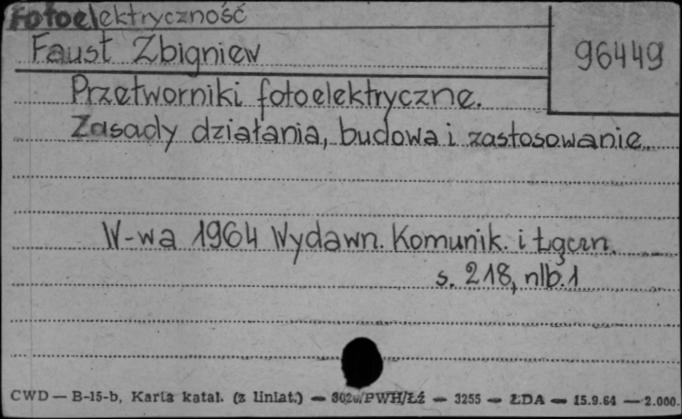 Fotoelektryczność
Faust Zbigniew
96449
Przetworniki fotoelektryczne.
Zasady działania, budowa i zastosowanie.
W-wa 1964 Wydawn. Komunik. i Łączn.
s. 218, nlb. 1
CWD — B-15-b, Karta katal. (z liniat.) — /PWH/Łź — 3255 — ŁDA — 15.9.64 — 2.000.